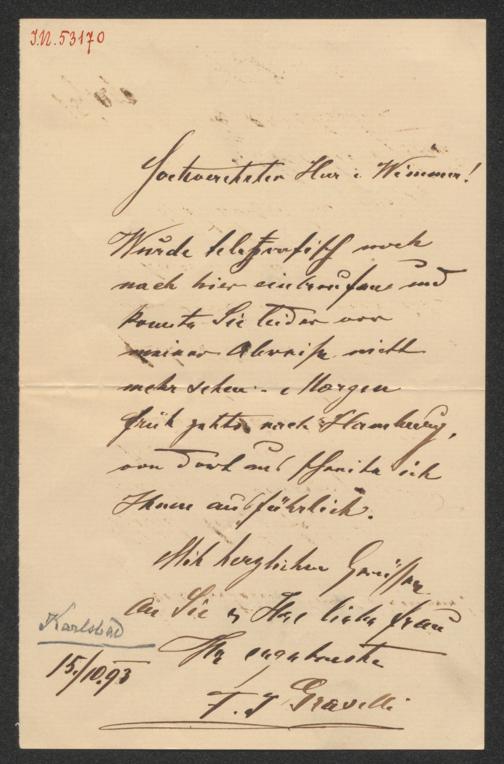 I.N. 53170
Hochverehrter Herr Wimmer!
Wurde telegrafisch noch
nach hier und
konnte Sie leider vor
meiner Abreise nicht
mehr sehen. Morgen
früh gehts nach Hamburg,
von dort aus schreibe ich
Ihnen ausführlich.
Mit herzlichen Grüssen
an Sie u Ihre liebe Frau
Ihr
Karlsbad
15./10.93
F. J